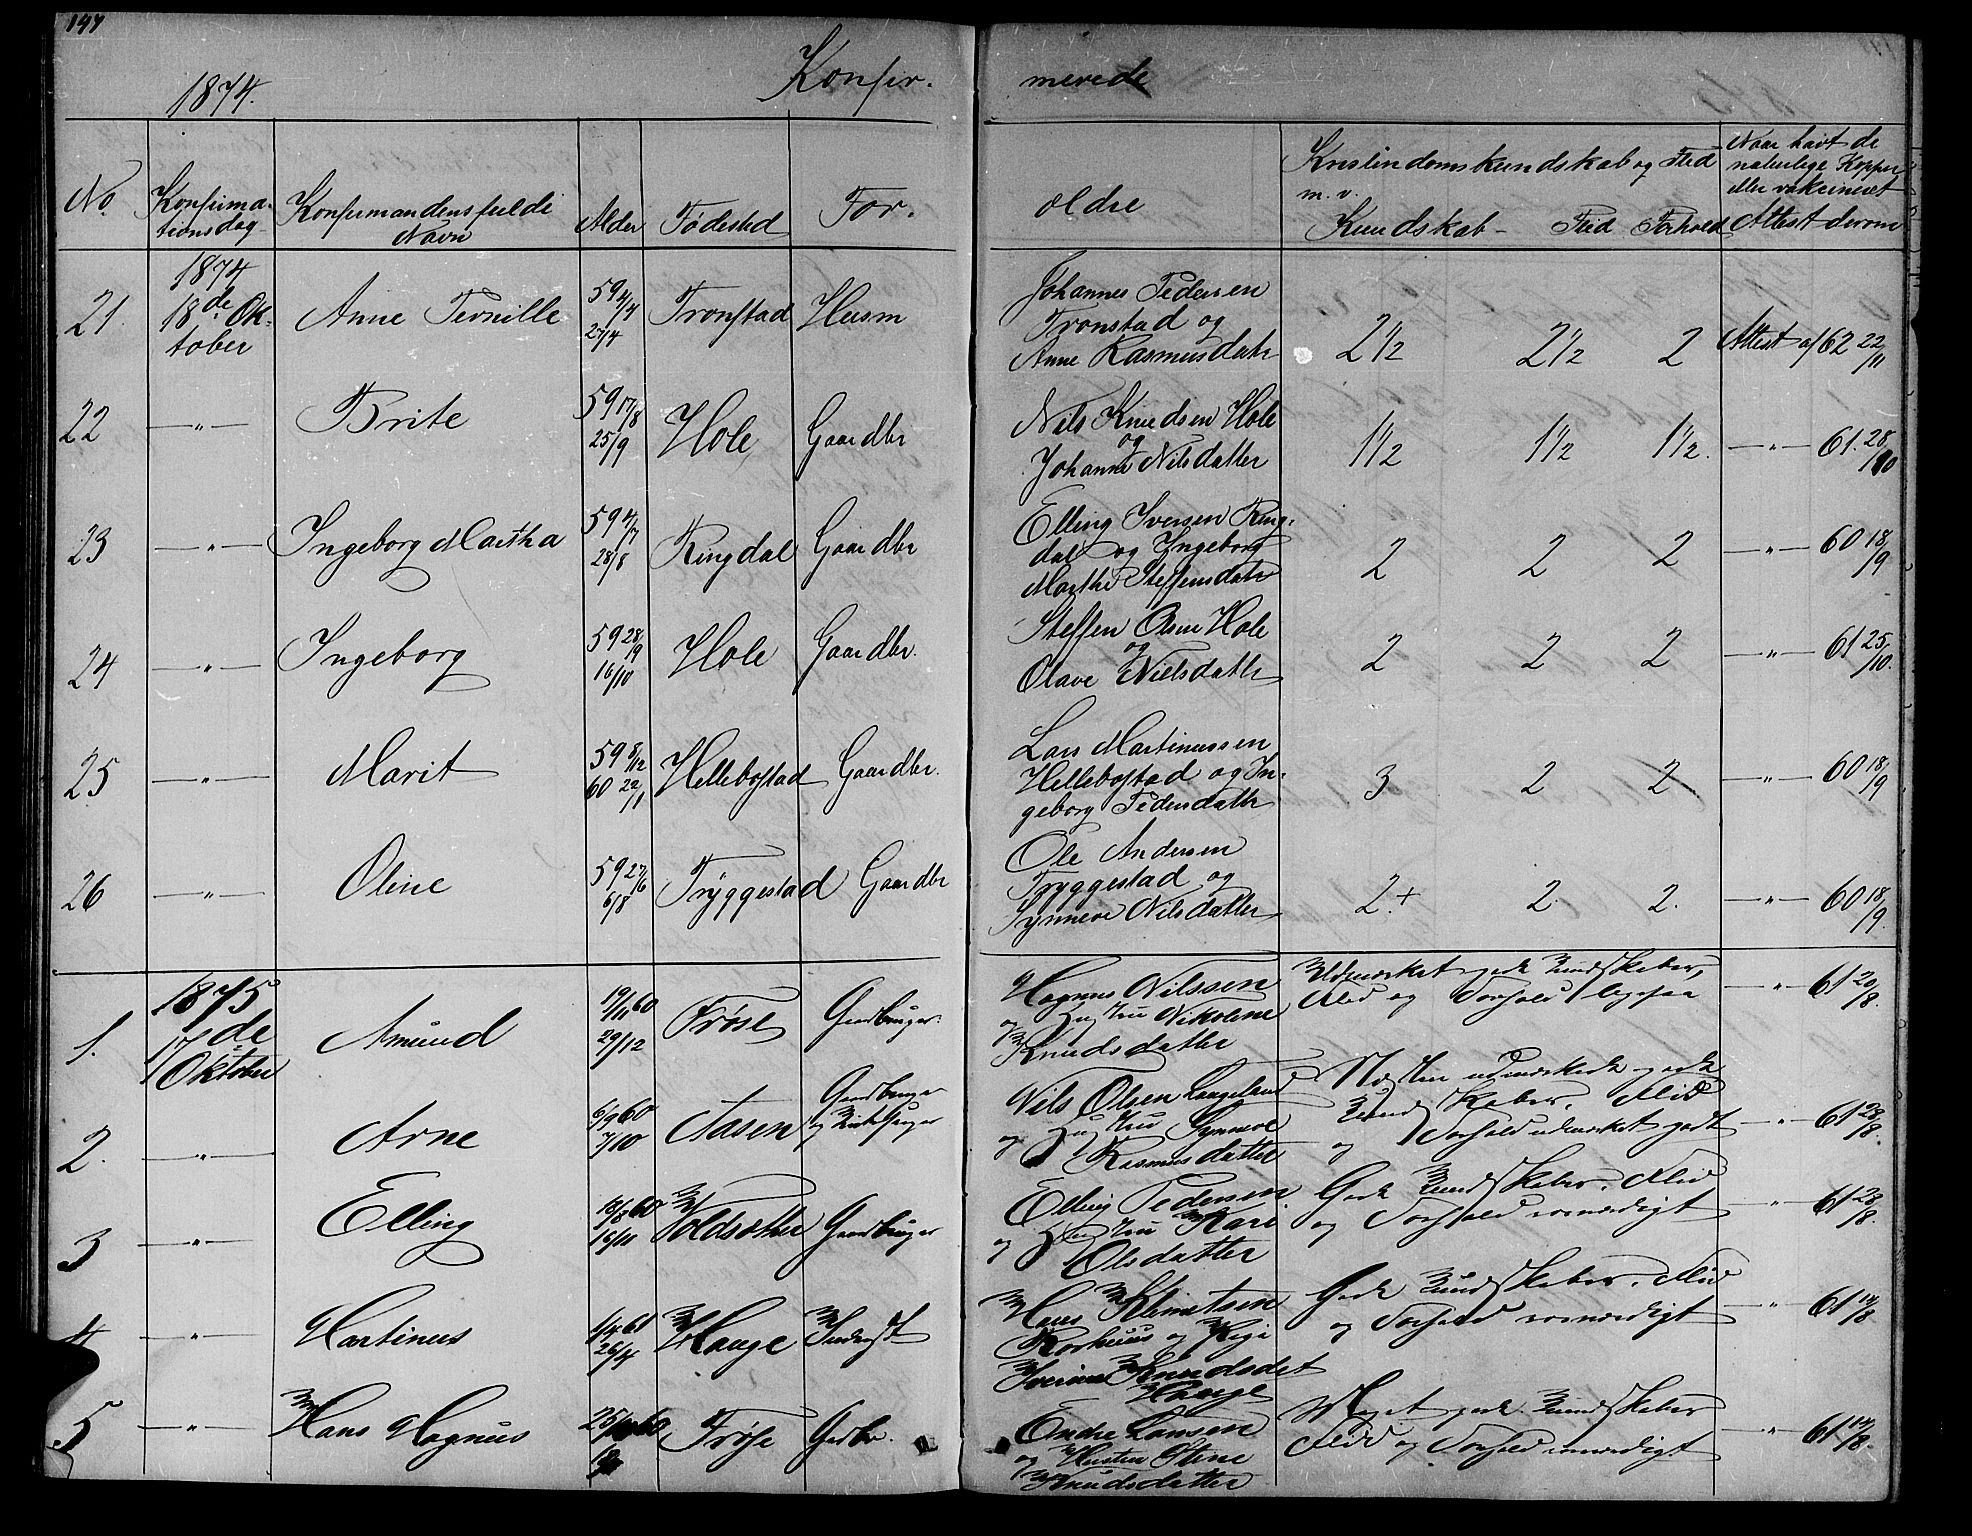 1874.
Konfir-
merede
No.
Konfirma-
tionsdag
Konfirmandens fulde
Navn
Alder
Fødested
For-
oldre
Kristindomskundskab og Flid
m. v.
Kundskab - Flid Forhold
Naar havt de
naturlege Kopper
eller vakcineret
Attest derom
21. 1874 18de Ok- tober Anne Pernille 59 4/4 27/4 Tronstad Husm
Johannes Pedersen
Tronstad og
Anne Rasmusdatr 2 1/2 2 1/2 2 Attest af 62 22/11
22 —"— Brite 59 17/8 25/9 Hole Gaardbr
Nils Knudsen Hole
og
Johanne Nilsdatter 1 1/2 1 1/2 1 1/2. —"— 61. 28/10
23 —"— Ingeborg Martha 59 4/7 28/8 Ringdal Gaardbr
Elling Iversen Ring-
dal og Ingeborg
Marthe Steffensdatr 2 2 2 —"— 60 18/9
24 —"— Ingeborg 59 28/9 16/10 Hole Gaardbr.
Steffen Olsen Hole
og
Olave Nielsdatr 2 2 2 —"— 61 25/10.
25 —"— Marit 59 8/12 60 22/1 Hellebostad Gaardbr.
Lars Martinussen
Hellebostad og In-
geborg Pedersdatr 3 2 2 —"— 60 18/9
26 —"— Oline 59 27/6 6/8 Tryggestad Gaardbr
Ole Andersen
Tryggestad og
Synneve Nilsdatter 2.+ 2. 2. —"— 60 18/9.
1. 1875 17de Oktober Amund 19/11 60 29/12 Frøse Gardbruger.
Magnus Nilssen
og Hustru Nikoline
Knudsdatter
Udmærket gode Kundskaber,
Flid og Forhold ligesaa —"— 61 20/8.
2. —"— Arne 6/9 60 7/10 Aasen Gardbruger
og Kirkesanger
Nils Olsen Langeland
og Hustru Synneve
Rasmusdatter
Næsten udmærkede gode
Kundskaber, Flid
og Forhold udmærket godt —"— 61 28/8.
3 —"— Elling 18/8 60 Voldsæther Gaardbruger
Elling Pedersen
og Hustru Kari
Olsdatter
Gode Kundskaber, Flid
og Forhold rosværdigt —"— 61 28/8.
4 —"— Martinus 1/4 61 26/4 Hauge
Hans Klemetsen
og Pige
Knudsdat
Hauge
Gode Kundskaber, Flid
og Forhold rosværdigt " 61 14/8
5 —"— Hans Magnus Frøse Gardbr.
Ondre Larssen
og Hustru Stine
Knudsdatter
Meget gode Kundskaber
Flid og Forhold rosværdigt —"— 61 14/8.